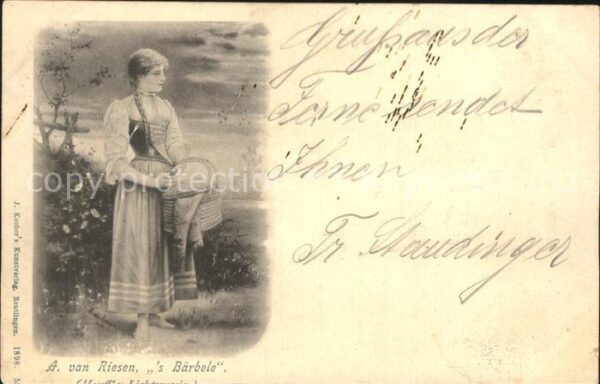 Gruß aus der
Ferne sendet
Ihnen
Fr. Staudinger
copyright protection
J. Kocher's Kunstverlag, Reutlingen. 1898.
A. van Riesen, „'s Bärbele".
(Hauffs Lichtenstein.)